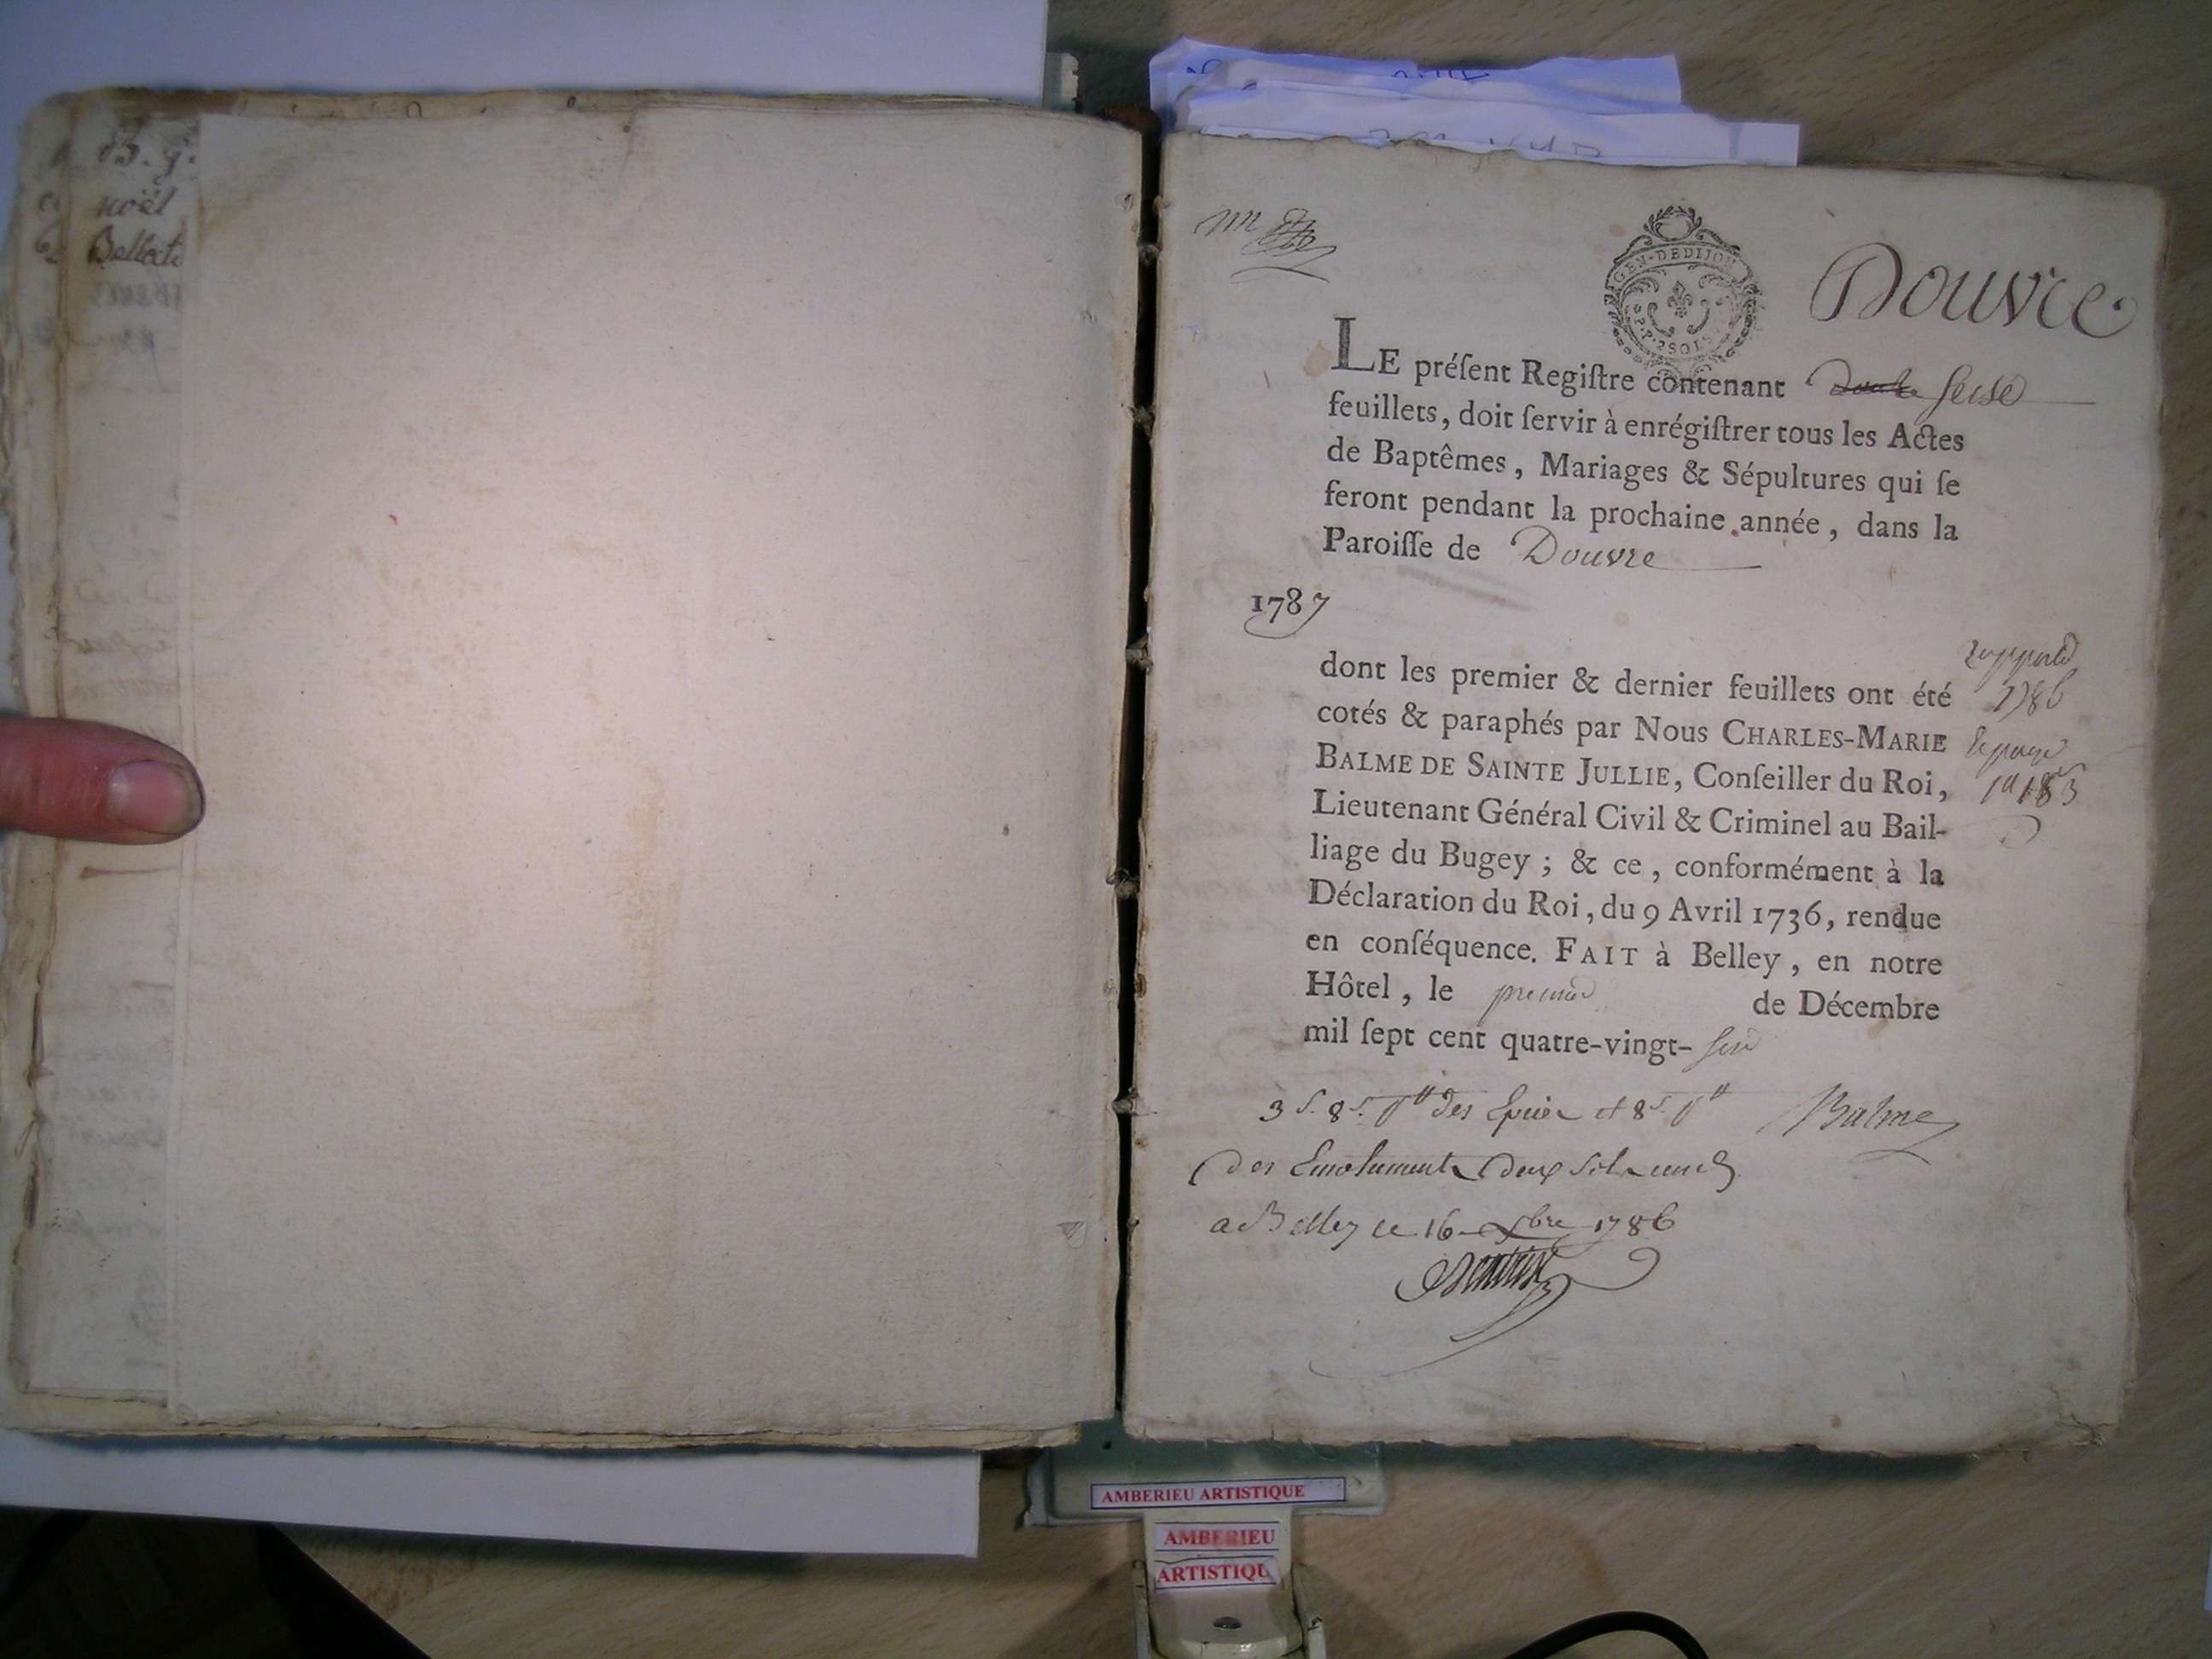 noël
Douvre
GEN·DEDIJON
LE préſent Regiſtre contenant ſeise
feuillets, doit ſervir à enrégiſtrer tous les Actes
de Baptêmes, Mariages & Sépultures qui ſe
feront pendant la prochaine année, dans la
Paroiſſe de Douvre
1787
dont les premier & dernier feuillets ont été
cotés & paraphés par Nous CHARLES-MARIE
BALME DE SAINTE JULLIE, Conſeiller du Roi,
Lieutenant Général Civil & Criminel au Bail-
liage du Bugey ; & ce, conformément à la
Déclaration du Roi, du 9 Avril 1736, rendue
en conſéquence. FAIT à Belley, en notre
Hôtel, le premier de Décembre
mil ſept cent quatre-vingt-
1786
3 s. 8 des et 8
Balme
des Emoluments deux
a Belley ce 16 xbre 1786
AMBERIEU ARTISTIQUE
AMBERIEU
ARTISTIQU